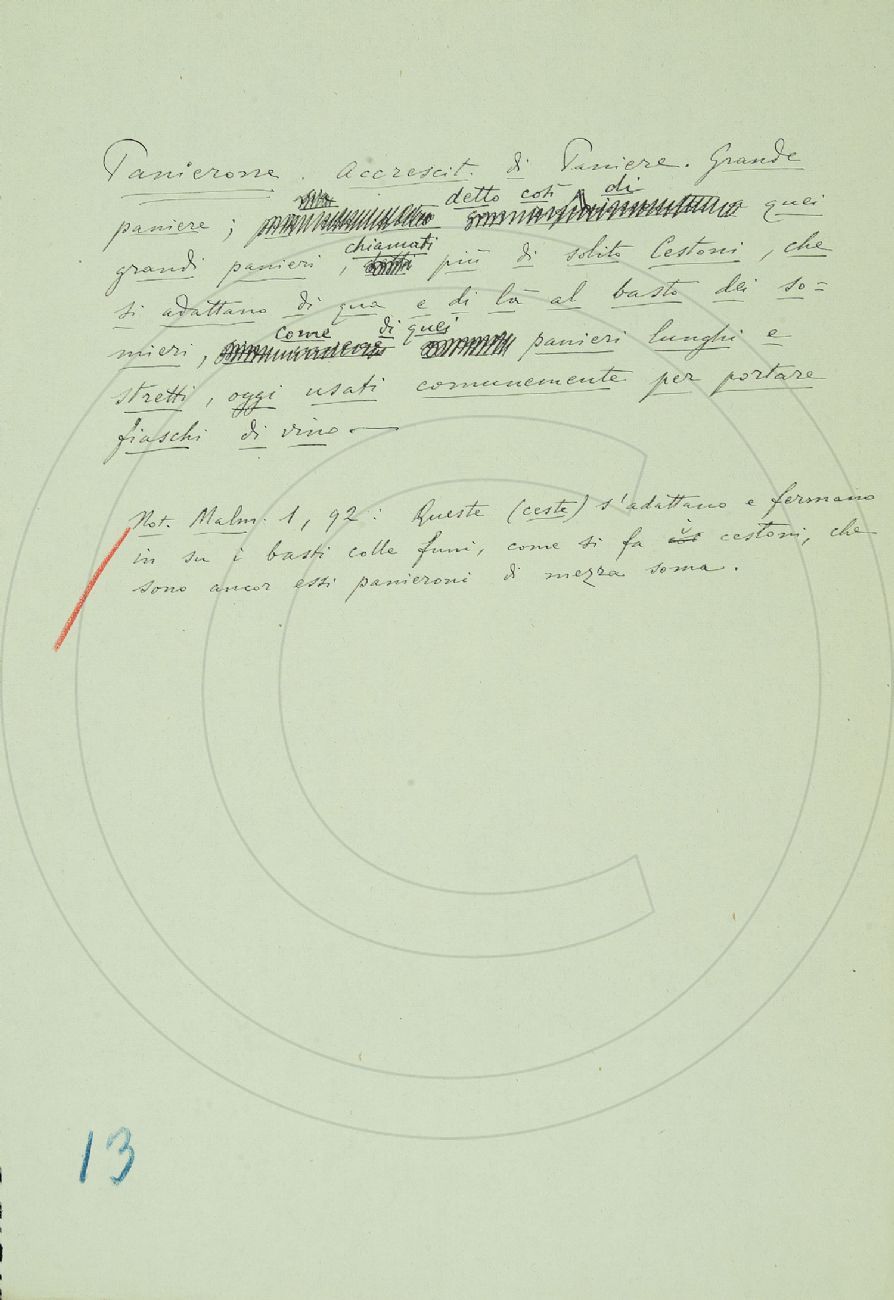 Panierone. Accrescit. di Paniere. Grande
paniere; detto così di quei
grandi panieri, chiamati più di solito Cestoni, che
si adattano di qua e di là al basto dei so=
mieri, come di quei panieri lunghi e
stretti, oggi usati comunemente per portare
fiaschi di vino —
Not. Malm. 1, 92: Queste (ceste) s'adattano e fermano
in su i basti colle funi, come si fa i cestoni, che
sono ancor essi panieroni di mezza soma.
13